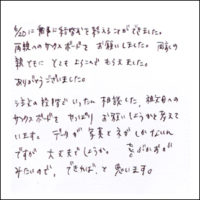 6/20に無事に結婚式を終えることができました。
両親へのサンクスボードを お願いしました。両家の
親ともに とても よろこんで もらえました。
ありがとうございました。
うちの
相談した、祖父母への
サンクスボードを やっぱり お願いしようかと考えて
います。データが 写真と るが しかないん
ですが 大丈夫でしょうか。
みたいので、できれば、と 思います。